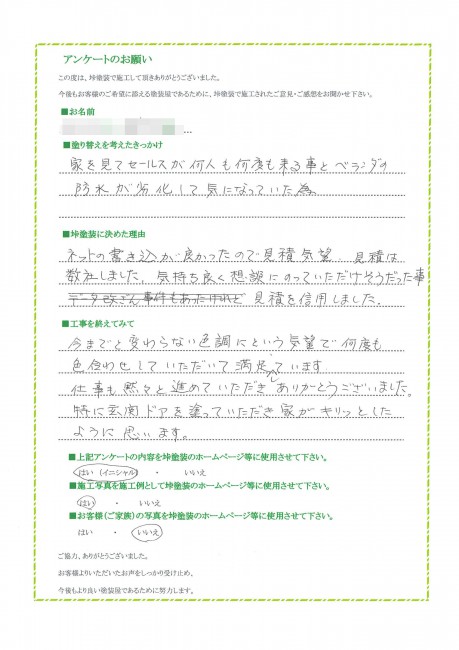 アンケートのお願い
この度は、垰塗装で施工して頂きありがとうございました。
今後もお客様のご希望に添える塗装屋であるために、垰塗装で施工されたご意見・ご感想をお聞かせ下さい。
■お名前
...
■塗り替えを考えたきっかけ
家を見てセールスが何人も何度も来る事とベランダの
防水が劣化して気になっていた為
■垰塗装に決めた理由
ネットの書き込が良かったので見積気望 見積は
数社しました、気持ち良く想談にのっていただけそうだった事
データ改ざん事件もあったけれど 見積を信用しました。
■工事を終えてみて
今までと変わらない色調にという気望で何度も
色合わせしていただいて満足しています
仕事も黙々と進めていただきありがとうございました。
特に玄関ドアを塗っていただき家がキリッとした
ように思います。
■上記アンケートの内容を垰塗装のホームページ等に使用させて下さい。
はい (イニシャル) ・ いいえ
■施工写真を施工例として垰塗装のホームページ等に使用させて下さい。
はい ・ いいえ
■お客様(ご家族)の写真を垰塗装のホームページ等に使用させて下さい。
はい ・ いいえ
ご協力、ありがとうございました。
お客様よりいただいたお声をしっかり受け止め、
今後もより良い塗装屋であるために努力します。